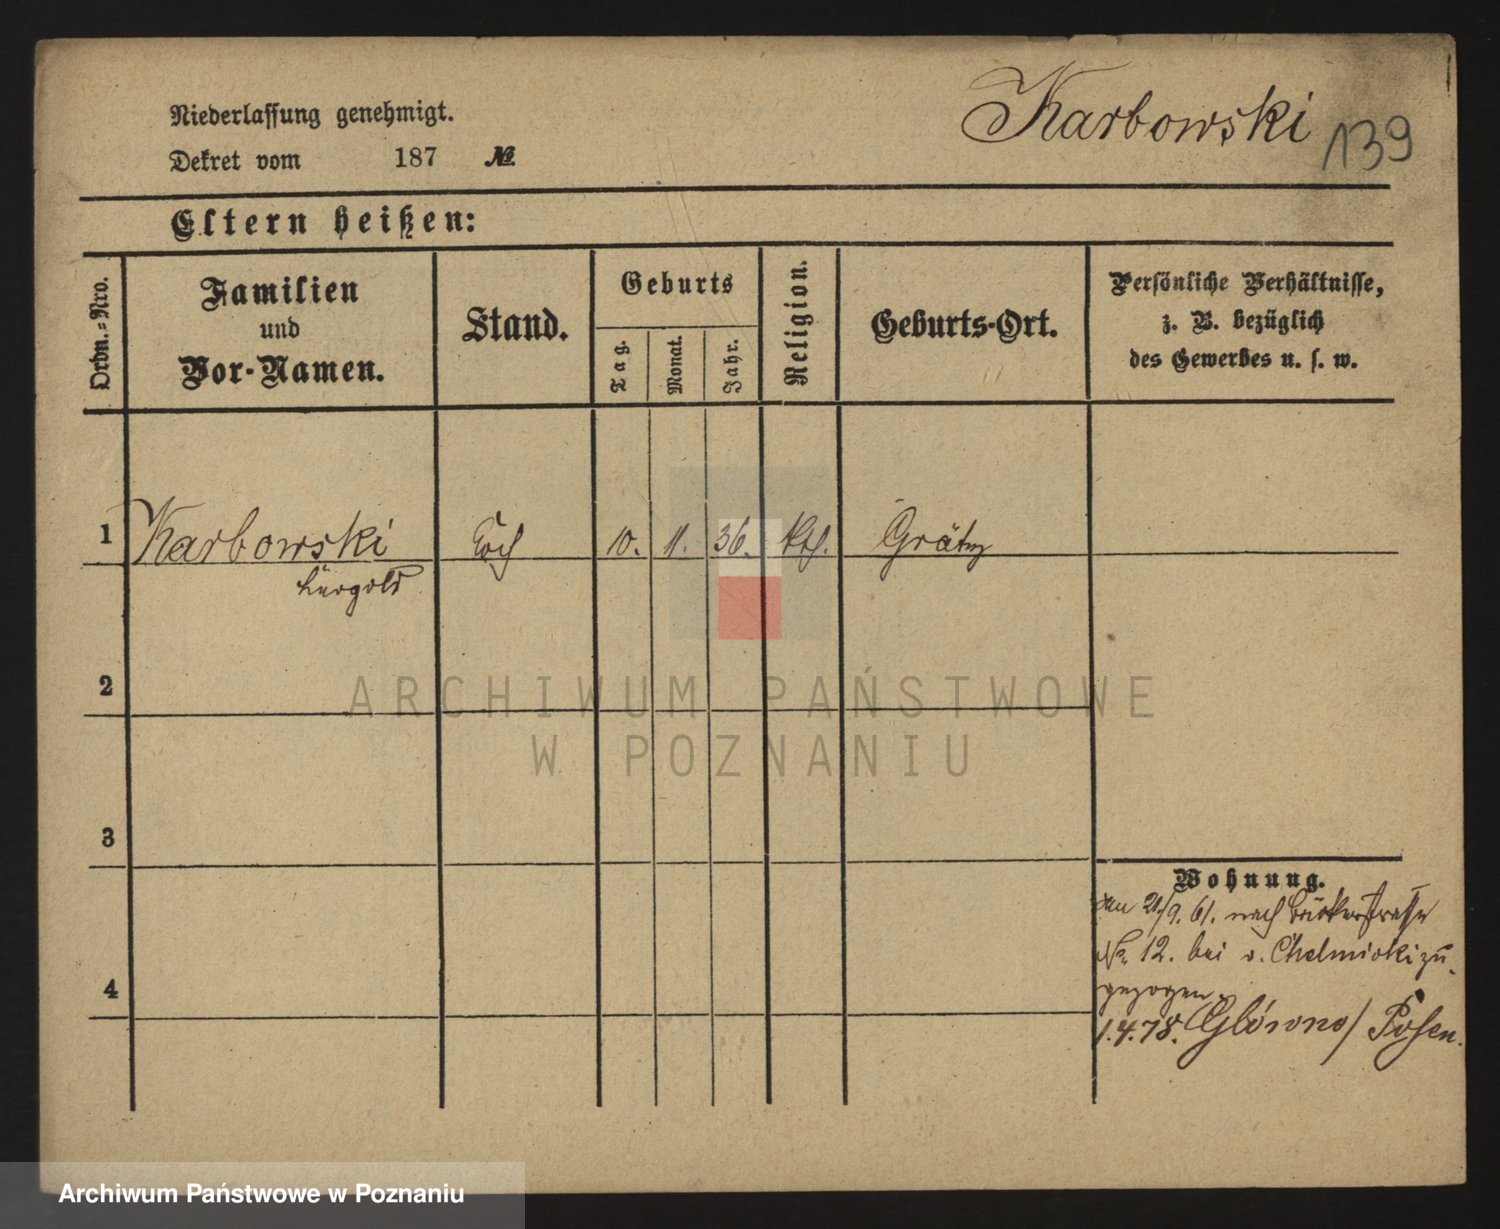 Niederlassung genehmigt.
Karbowski 139
Dekret vom 187 №
Eltern heißen:
Ordn.-Nro.
Familien
und
Vor-Namen.
Stand.
Geburts
Tag.
Monat.
Jahr.
Religion.
Geburts-Ort.
Persönliche Verhältnisse,
z. B. bezüglich
des Gewerbes u. s. w.
1 Karbowski 10. 11. 36. Kth. Grätz
2
3
4
Wohnung.
am 21/9. 61. nach Bäckerstrasse
No 12. bei v. Chelmicki zu-
gezogen.
1.4.78. Glówno/ Posen.
ARCHIWUM PAŃSTWOWE
W POZNANIU
Archiwum Państwowe w Poznaniu